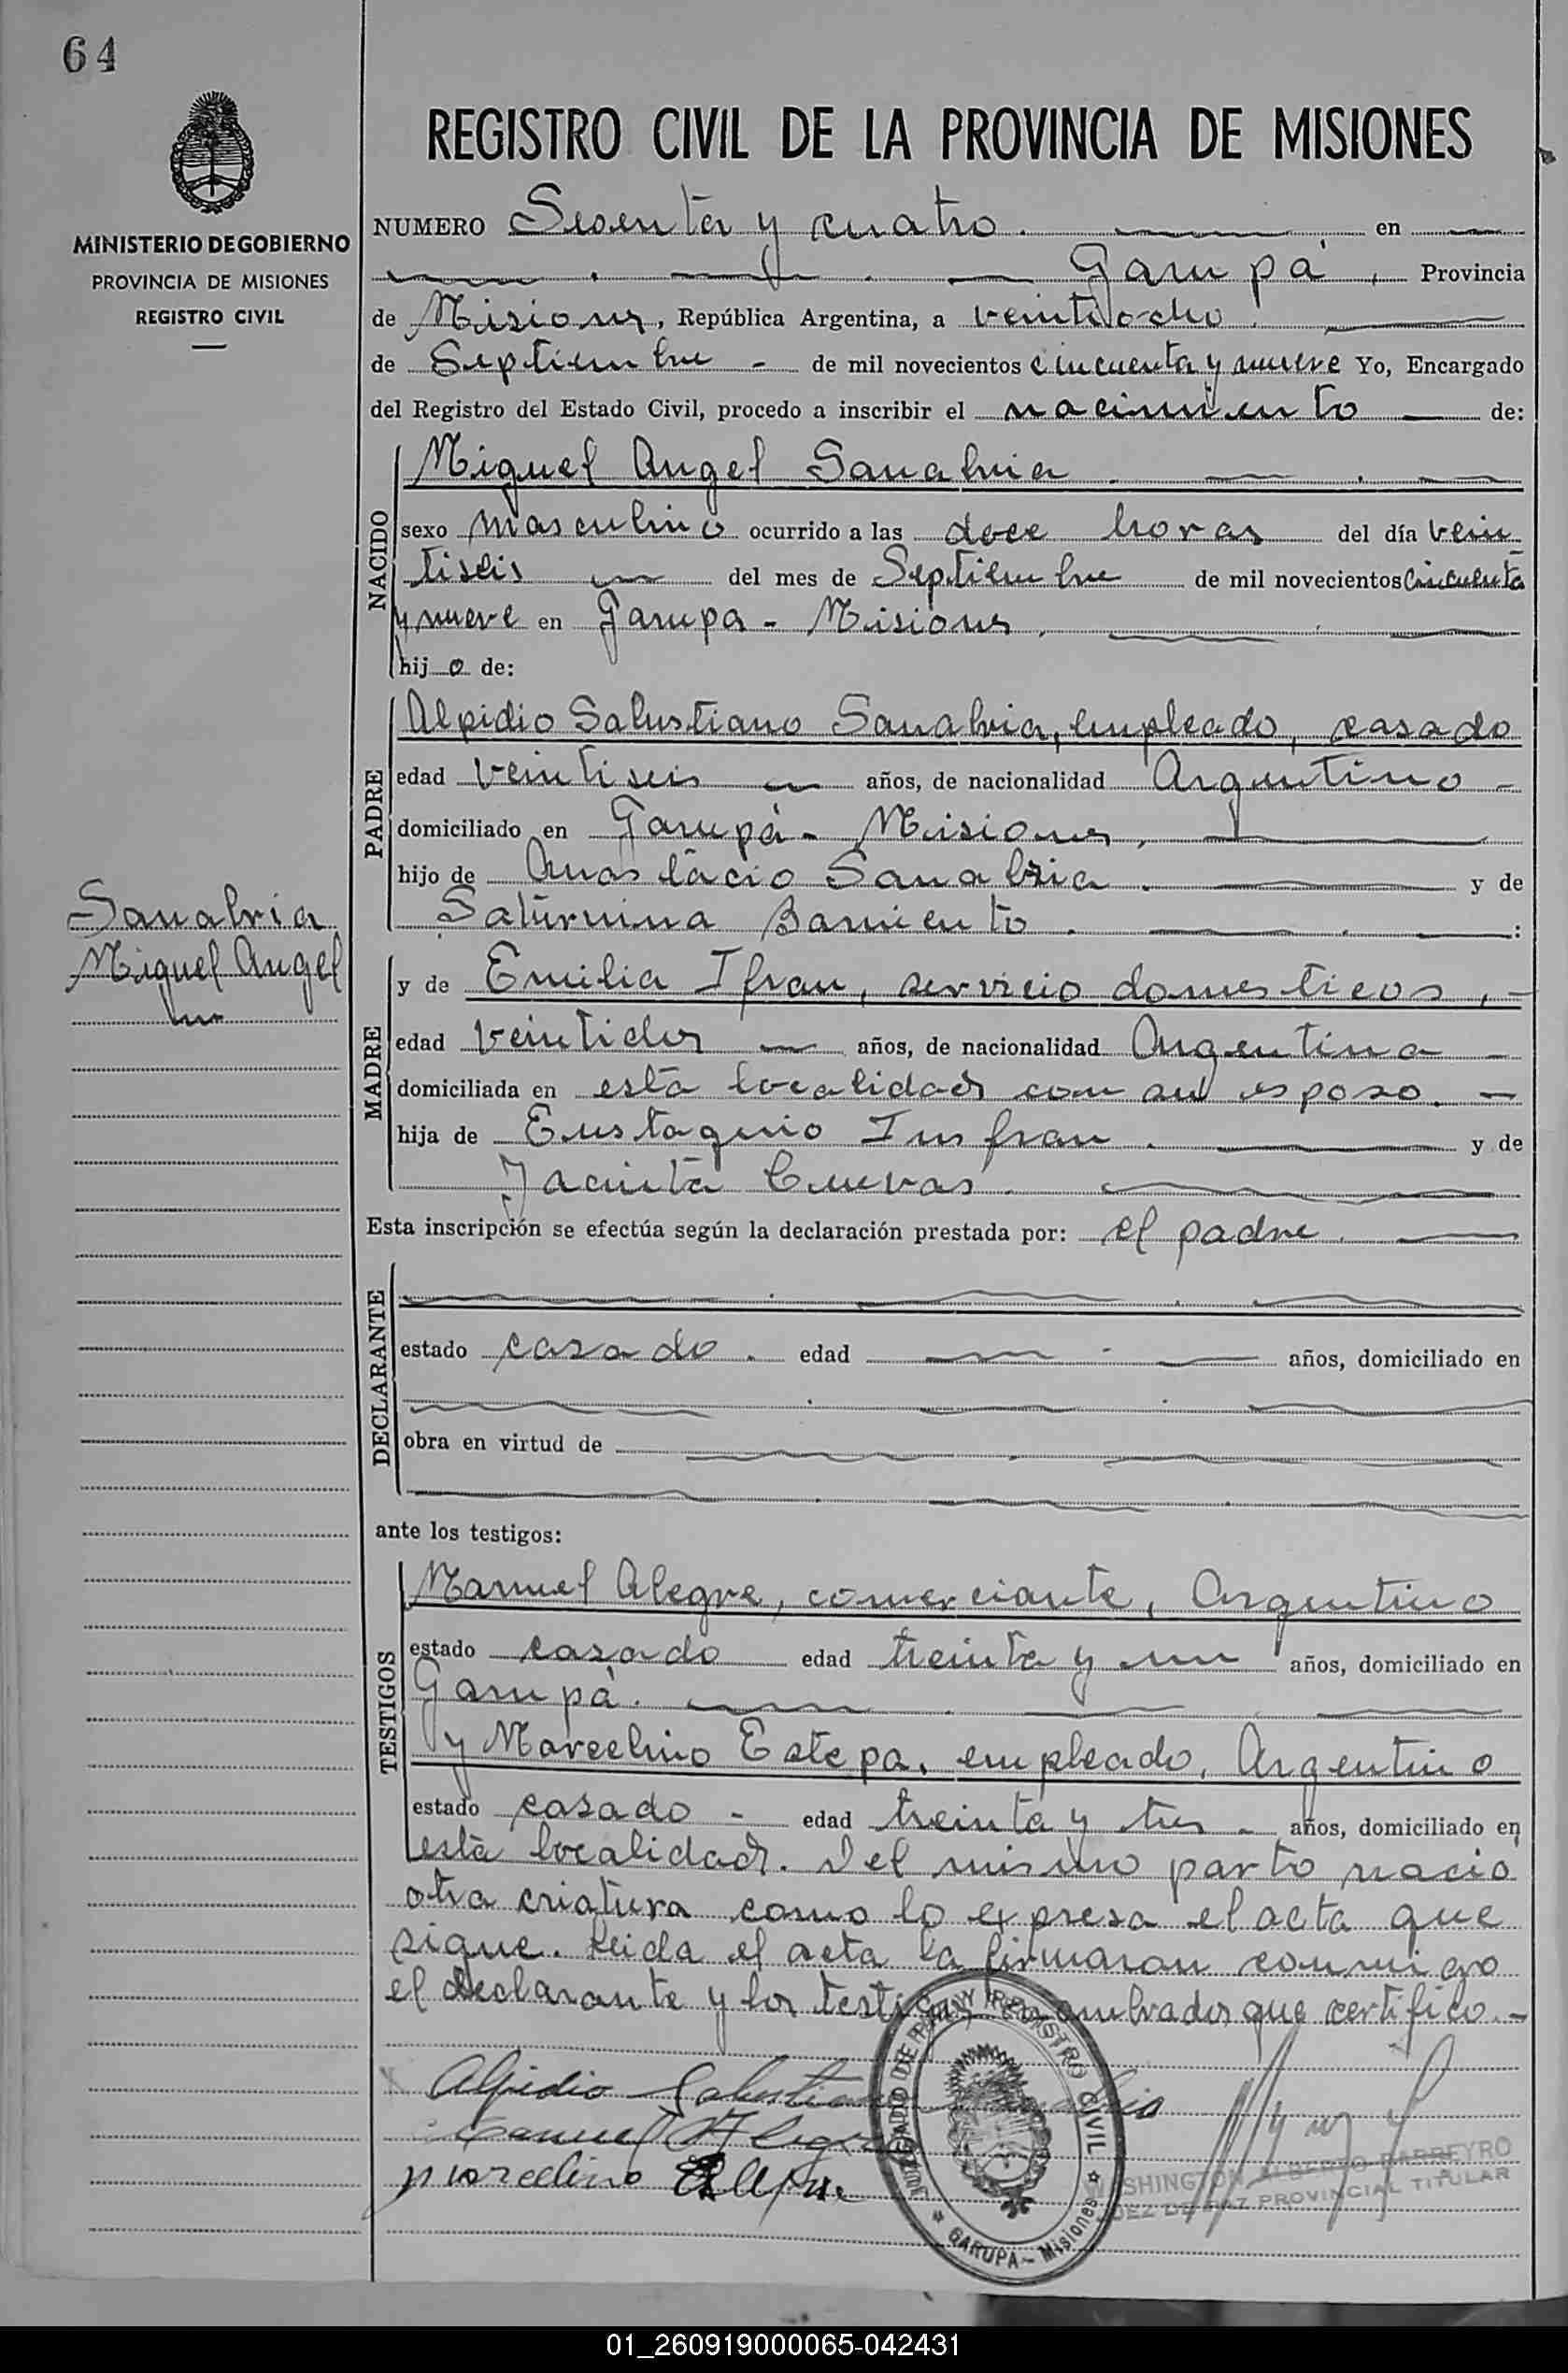 64
MINISTERIO DE GOBIERNO
PROVINCIA DE MISIONES
REGISTRO CIVIL
REGISTRO CIVIL DE LA PROVINCIA DE MISIONES
NUMERO Sesenta y cuatro. en
Garupá, Provincia
de Misiones, República Argentina, a veintiocho
de Septiembre - de mil novecientos cincuenta y nueve Yo, Encargado
del Registro del Estado Civil, procedo a inscribir el nacimiento de:
NACIDO
Miguel Angel Sanabria.
sexo masculino ocurrido a las doce horas del día vein
tiseis del mes de Septiembre de mil novecientos cincuenta
y nueve en Garupa - Misiones.
hijo de:
PADRE
Alpidio Salustiano Sanabria, empleado, casado
edad veintiseis años, de nacionalidad Argentino -
domiciliado en Garupá - Misiones,
hijo de Anastacio Sanabria. y de
Saturnina Barriento. :
Sanabria
Miguel Angel
MADRE
y de Emilia Ifran, servicio domesticos, -
edad veintidos años, de nacionalidad Argentina -
domiciliada en esta localidad con su esposo. -
hija de Eustaquio Insfran. y de
Jacinta Cuevas.
Esta inscripción se efectúa según la declaración prestada por: el padre.
DECLARANTE
estado casado. edad años, domiciliado en
obra en virtud de
ante los testigos:
TESTIGOS
Manuel Alegre, comerciante, Argentino
estado casado edad treinta y un años, domiciliado en
Garupá.
y Marcelino Estepa, empleado, Argentino
estado casado - edad treinta y tres - años, domiciliado en
esta localidad. Del mismo parto nació
otra criatura como lo expresa el acta que
sigue. Leida el acta la firmaron conmigo
el declarante y los testigos nombrados que certifico. -
Alpidio Salustiano Sanabria
Manuel Alegre
Marcelino Estepa
JUZGADO DE PAZ Y REGISTRO CIVIL
GARUPA - Misiones
WASHINGTON ALBERTO BARREYRO
JUEZ DE PAZ PROVINCIAL TITULAR
01_260919000065-042431